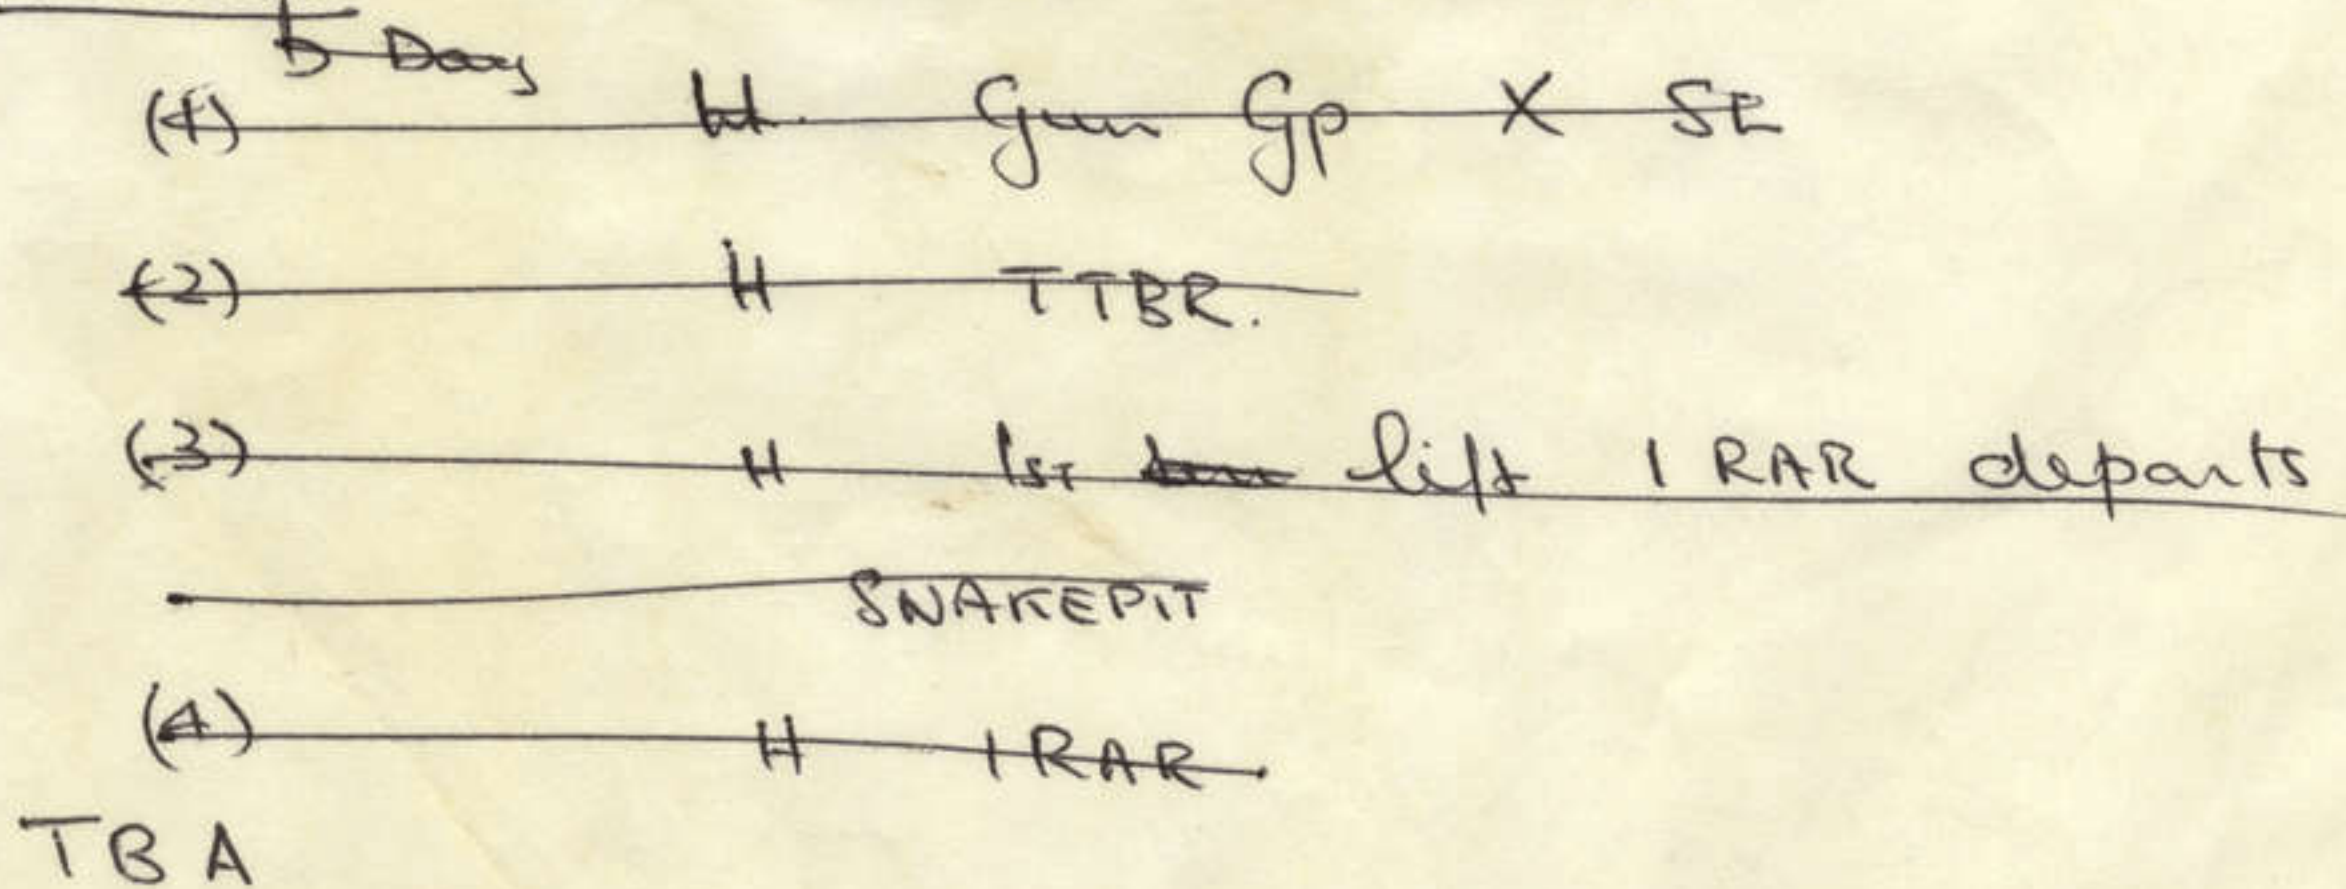 D Day
(1) H Gun Gp X SE
(2) H TTBR.
(3) H 1ST lift 1 RAR departs
SNAKEPIT
(4) H 1 RAR
TBA